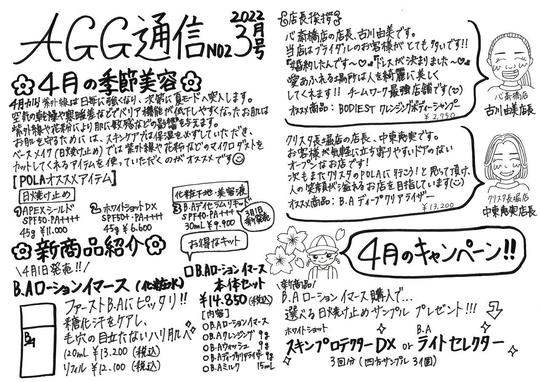 AGG通信 NO2
2022
3月号
✿4月の季節美容✿
4月から紫外線は日毎に強くなり、次第に夏モードへ突入します。
空気の乾燥や寒暖差などでバリア機能が低下しやすくなったお肌は
紫外線や花粉により肌に敏感などの影響を与えます。
お肌を守るためには、スキンケアでは保湿を必ずしていただき、
ベースメイク(日焼け止め)では紫外線や花粉などのマイクロダストを
カットしてくれるアイテムを使っていただくのがオススメです
[POLAオススメアイテム]
日焼け止め
化粧下地・美容液
①APEXシールド
SPF50・PA++++
45g ¥11.000
2.ホワイトショットDX
SPF50+・PA++++
45g ¥6.600
3.B.Aデイセラムリキッド
SPF40・PA++++
30mL ¥9.900
3月1日新発売
✿新商品紹介✿
\4月1日発売!!/
B.Aローションイマース(化粧水)
ファーストB.Aにピッタリ!!
糖化汗をケアし、
毛穴の目立たないハリ肌へ
120mL ¥13.200(税込)
リフィル ¥12.100(税込)
BA
お得なキット
□B.Aローションイマース
本体セット
¥14.850(税込)
[内容]
○B.Aローションイマース
○B.Aクレンジング 9g
○B.Aウォッシュ 9g
○B.Aディープクリアライザー 9g
○B.Aミルク 15mL
店長挨拶
心斎橋店の店長、古川由美です。
当店はブライダルのお客様がとても多いです!!
"婚約したんです〜♡""ドレスが決まりました〜♡"
愛あふれる場所は人を綺麗に美しく
してくれます!! チームワーク最強店舗です(♡)
オススメ商品:BODIEST クレンジングボディシャンプー
¥2,750
心斎橋店
古川由美店長
クリスタ長堀店の店長、中東尭実です。
お客様が気軽に立ち寄りやすいドアのない
オープンなお店です!
次もまたクリスタのPOLAに行こう!と思って頂け、
人の笑顔が溢れるお店を目指しています(♡)
オススメ商品:B.Aディープクリアライザー
¥13,200
クリスタ長堀店
中東尭実店長
4月のキャンペーン!!
新商品
B.Aローションイマース購入で…
選べる日焼け止めサンプルプレゼント!!!
ホワイトショット
スキンプロテクターDX or
B.A
ライトセレクター
3回分(四方サンプル3個)